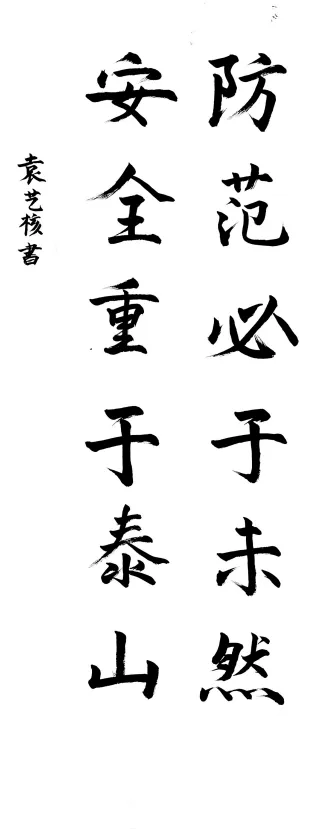 防范必于未然
安全重于泰山
袁艺核书